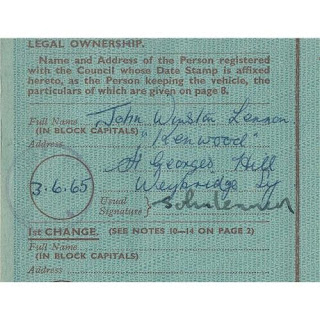 LEGAL OWNERSHIP.
Name and Address of the Person registered
with the Council whose Date Stamp is affixed
hereto, as the Person keeping the vehicle,
the particulars of which are given on page 8.
Full Name John Winston Lennon
(IN BLOCK CAPITALS) "Kenwood"
Address
St Georges Hill
3.6.65 Weybridge Sy
Usual
Signature } John Lennon
1st CHANGE. (SEE NOTES 10—14 ON PAGE 2)
Full Name
(IN BLOCK CAPITALS)
Address